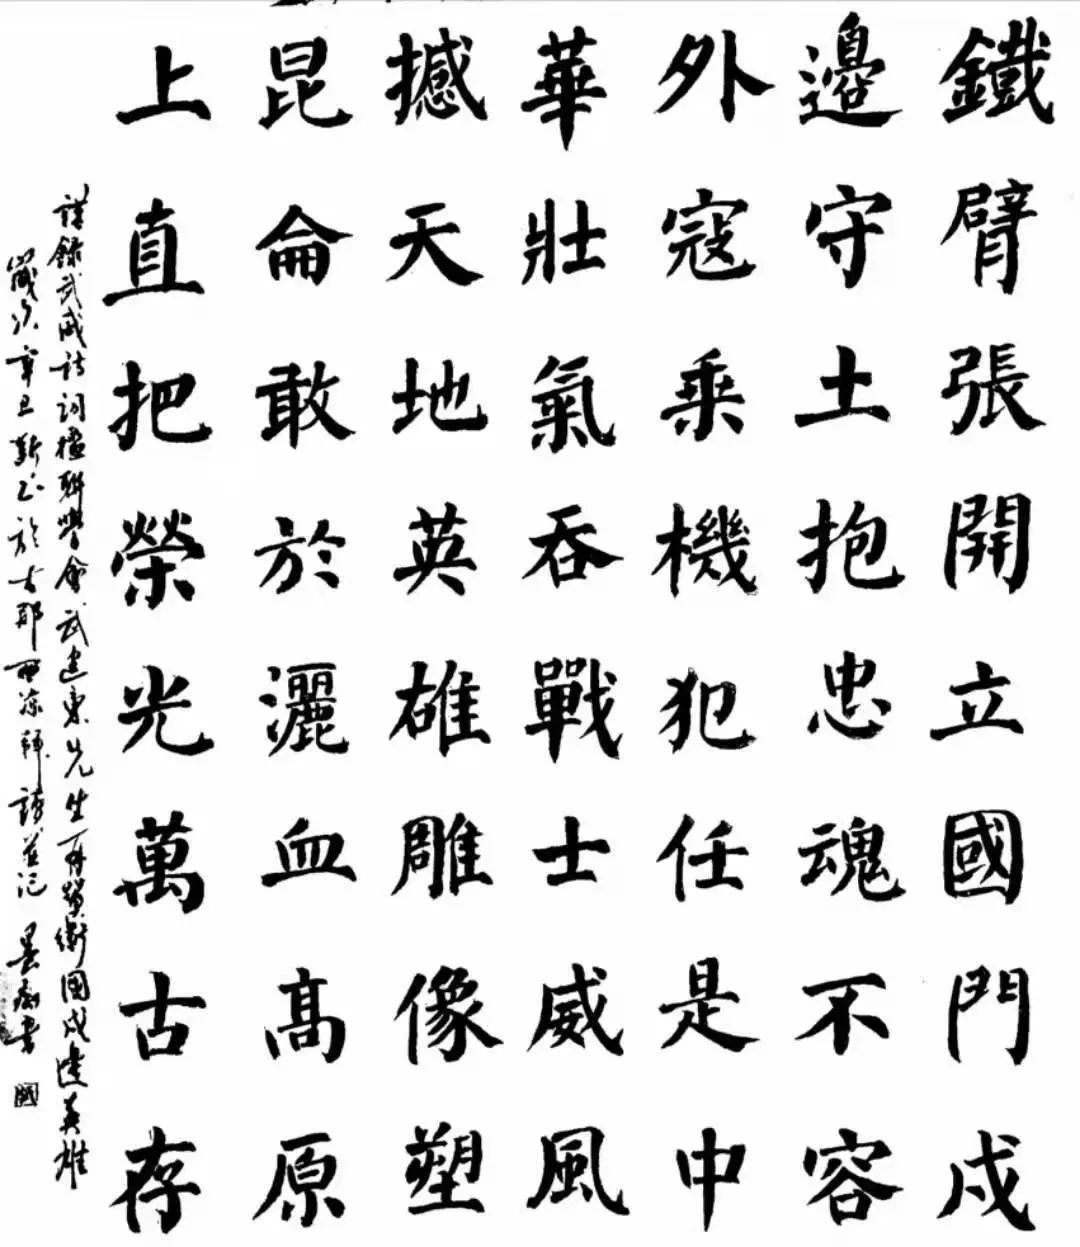 鐵臂張開立國門戍
邊守土抱忠魂不容
外寇乘機犯任是中
華壯氣吞戰士威風
撼天地英雄雕像塑
昆侖敢於灑血高原
上直把榮光萬古存
謹錄武威詩詞楹聯學會武建東先生再贊衛國戍邊英雄
歲次辛丑於古郡西涼拜讀並記書